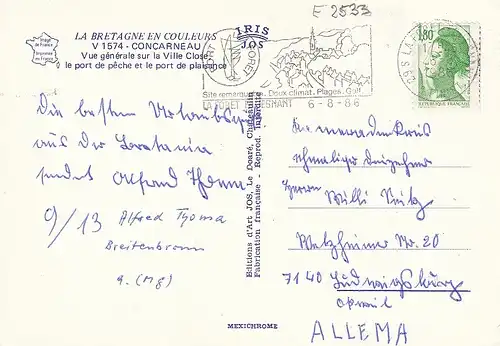 E 2533
LA BRETAGNE EN COULEURS
V 1574 - CONCARNEAU
Vue générale sur la Ville Close,
le port de pêche et le port de plaisance
Image
de France
Imprimée
en France
IRIS
JOS
Site remarquable. Doux climat. Plages. Golf
LA FORET FOUESNANT 6-8-86
1,80
REPUBLIQUE FRANÇAISE
Die besten Urlaubsgrüße
aus der Bretania
sendet Alfred Thoma
9/13 Alfred Tyoma
Breitenbronn
a. (Mg)
Editions d'Art JOS, Le Doaré, Chateaulin
Fabrication française - Reprod. Interdite
MEXICHROME
Kameradenkreis
ehmaliger
Herrn
Willi
Welzheimer Str. 20
7140 Ludwigsburg
ALLEMA